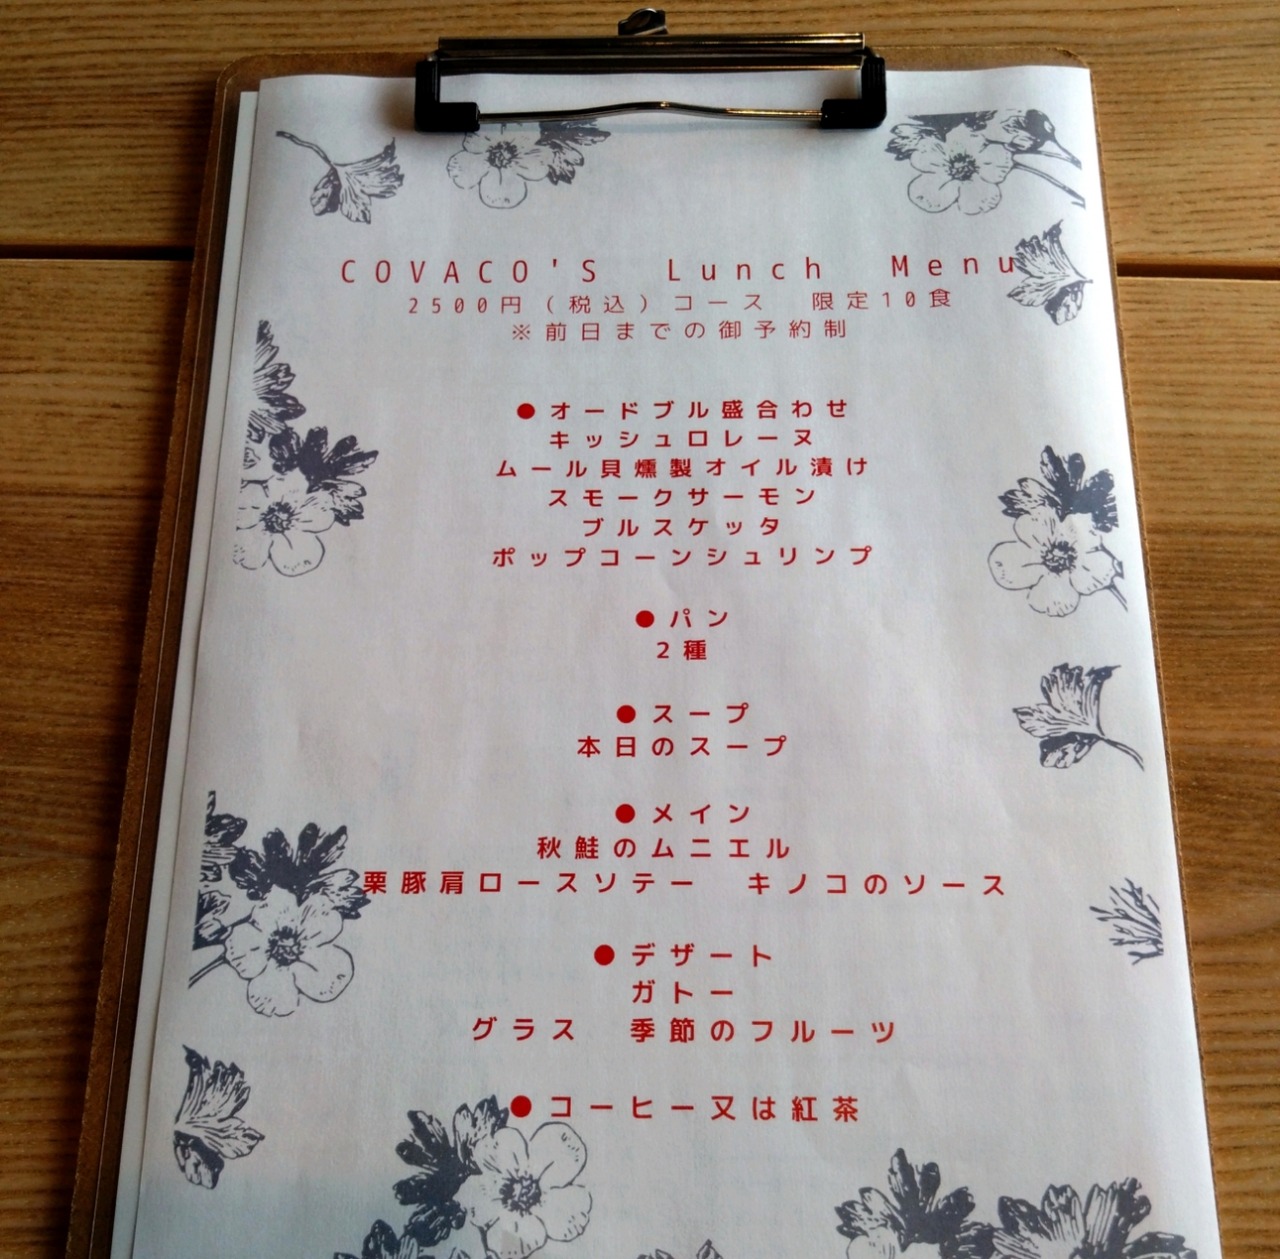 COVACO'S Lunch Menu
2500円(税込)コース 限定10食
※前日までの御予約制
●オードブル盛合わせ
キッシュロレーヌ
ムール貝燻製オイル漬け
スモークサーモン
ブルスケッタ
ポップコーンシュリンプ
●パン
2種
●スープ
本日のスープ
●メイン
秋鮭のムニエル
栗豚肩ロースソテー キノコのソース
●デザート
ガトー
グラス 季節のフルーツ
●コーヒー又は紅茶